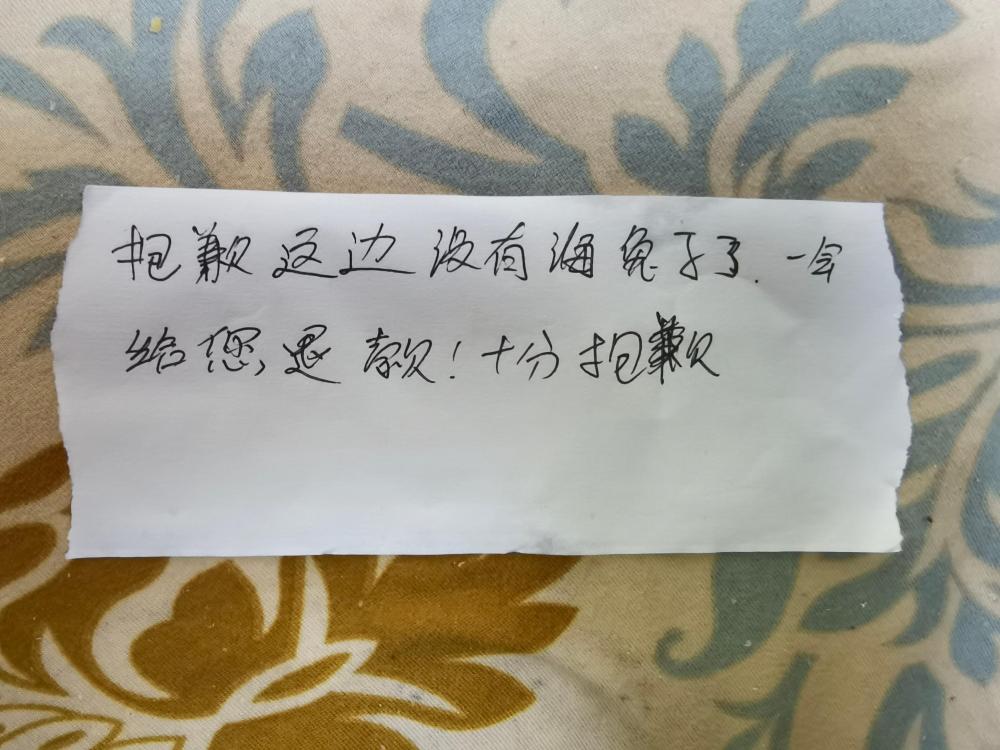 抱歉这边没有海兔子了.一会
给您退款!十分抱歉